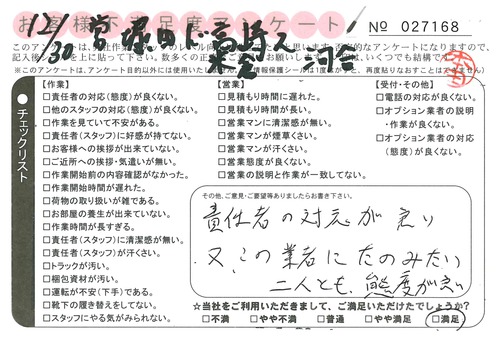 お客様不満足度アンケート
№ 027168
12/30
このアンケートは、
記入後
※このアンケートは、アンケート目的以外には使用いたしません。
チェックリスト
【作業】
□責任者の対応(態度)が良くない。
□他のスタッフの対応(態度)が良くない。
□作業を見ていて不安がある。
□責任者(スタッフ)に好感が持てない。
□お客様への挨拶が出来ていない。
□ご近所への挨拶・気遣いが無い。
□作業開始前の内容確認がなかった。
□作業開始時間が遅れた。
□荷物の取り扱いが雑である。
□お部屋の養生が出来ていない。
□作業時間が長すぎる。
□責任者(スタッフ)に清潔感が無い。
□責任者(スタッフ)が汗くさい。
□トラックが汚い。
□梱包資材が汚い。
□運転が不安(下手)である。
□靴下の履き替えをしてない。
□スタッフにやる気がみられない。
【営業】
□見積もり時間に遅れた。
□見積もり時間が長い。
□営業マンに清潔感が無い。
□営業マンが煙草くさい。
□営業マンが汗くさい。
□営業態度が良くない。
□営業の説明と作業が一致してない。
【受付・その他】
□電話の対応が良くない。
□オプション業者の説明
・作業が良くない。
□オプション業者の対応
(態度)が良くない。
その他、ご意見・ご要望等ありましたらお書き下さい。
責任者の対応が良い
又、この業者にたのみたい
二人とも、態度が良い
☆当社をご利用いただきまして、ご満足いただけたでしょうか?
□不満 □やや不満 □普通 □やや満足 □満足